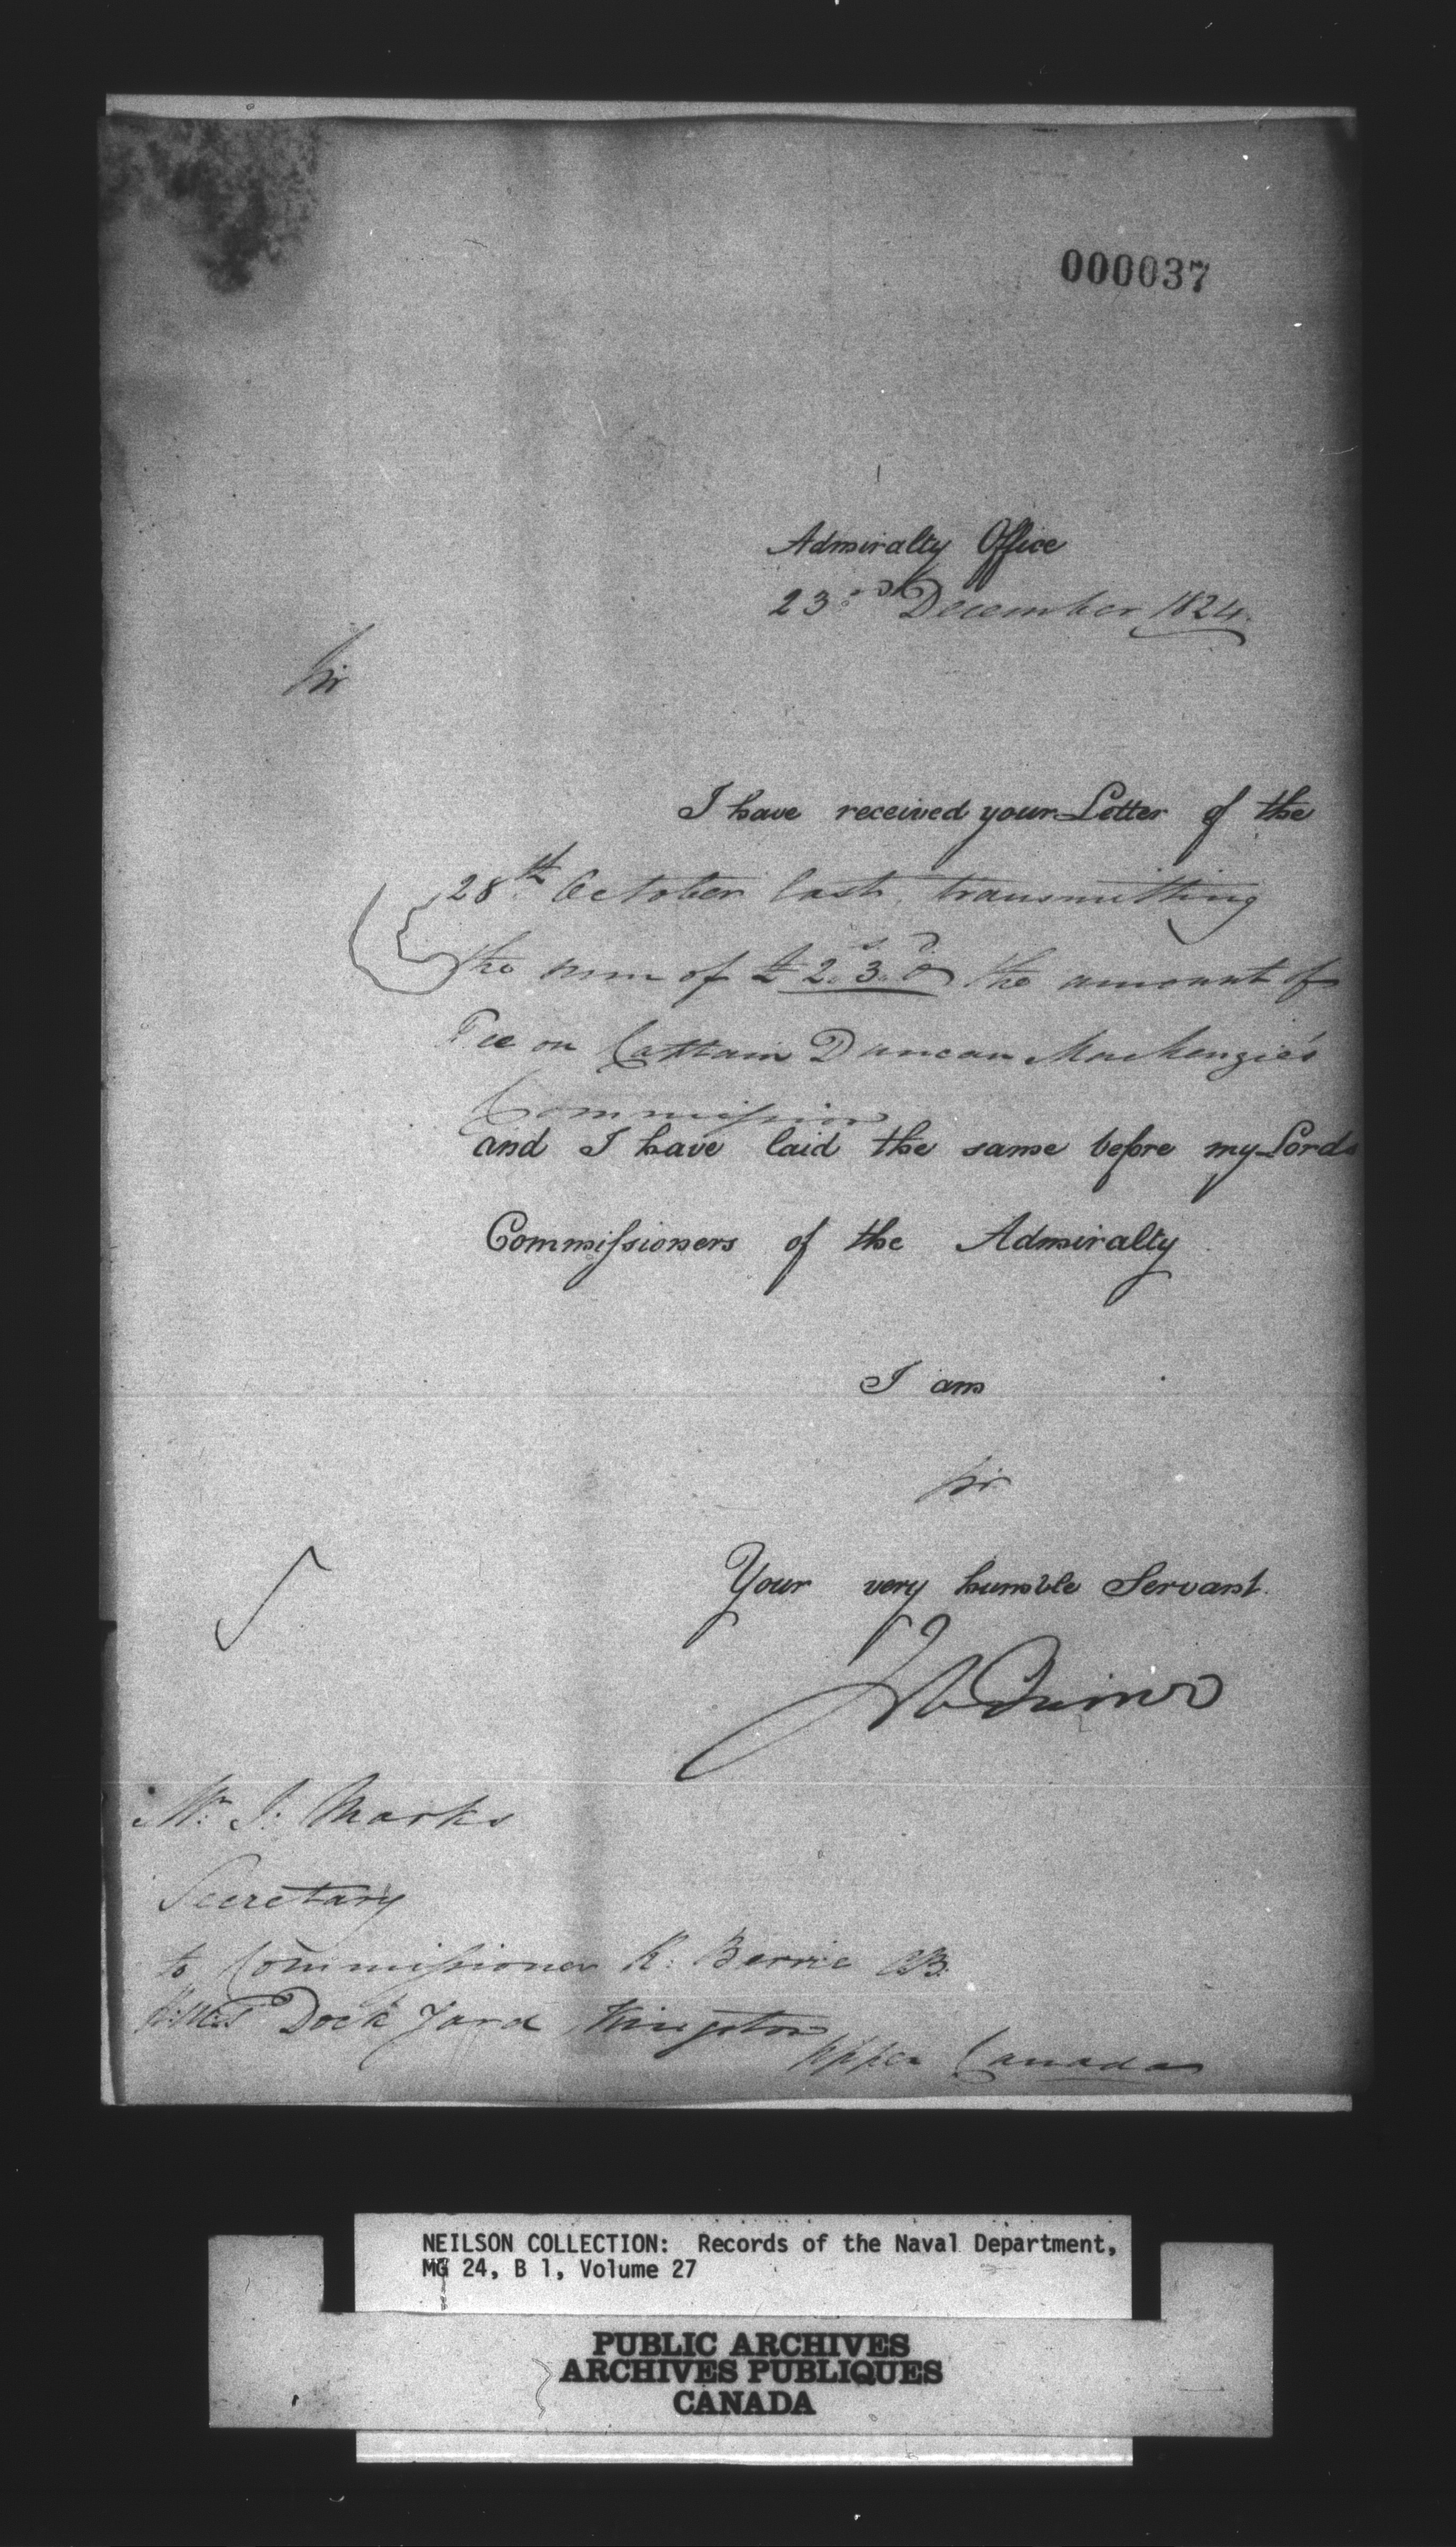 000037
Admiralty Office
23rd December 1824.
Sir
I have received your Letter of the
28th October last, transmitting
the sum of £2.3.0 the amount of
Fee on Captain Duncan MacKenzie's
Commission
and I have laid the same before my Lords
Commissioners of the Admiralty.
I am
Sir
Your very humble Servant.
Mr. J: Marks
Secretary
to Commissioner R: Barrie CB.
Dock Yard Kingston
Upper Canada
NEILSON COLLECTION: Records of the Naval Department,
MG 24, B 1, Volume 27
PUBLIC ARCHIVES
ARCHIVES PUBLIQUES
CANADA